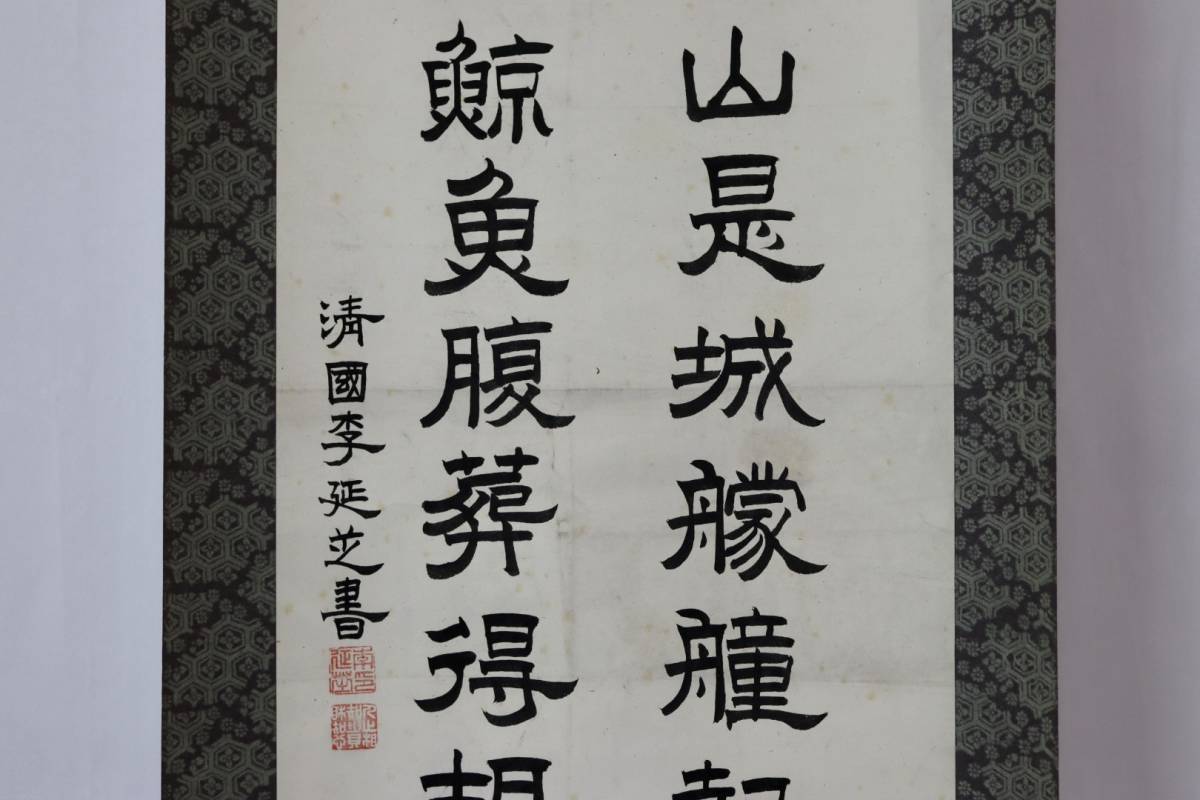 山是城艨艟
鯨魚腹葬得胡
清國李延芝書